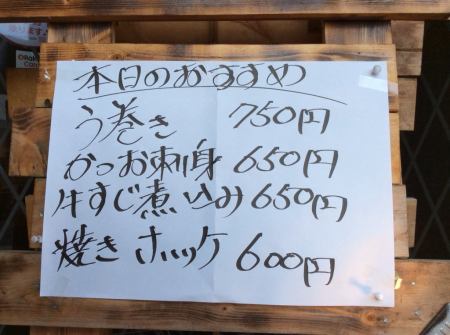 本日のおすすめ
う巻き 750円
かつお刺身 650円
牛すじ煮込み 650円
焼きホッケ 600円